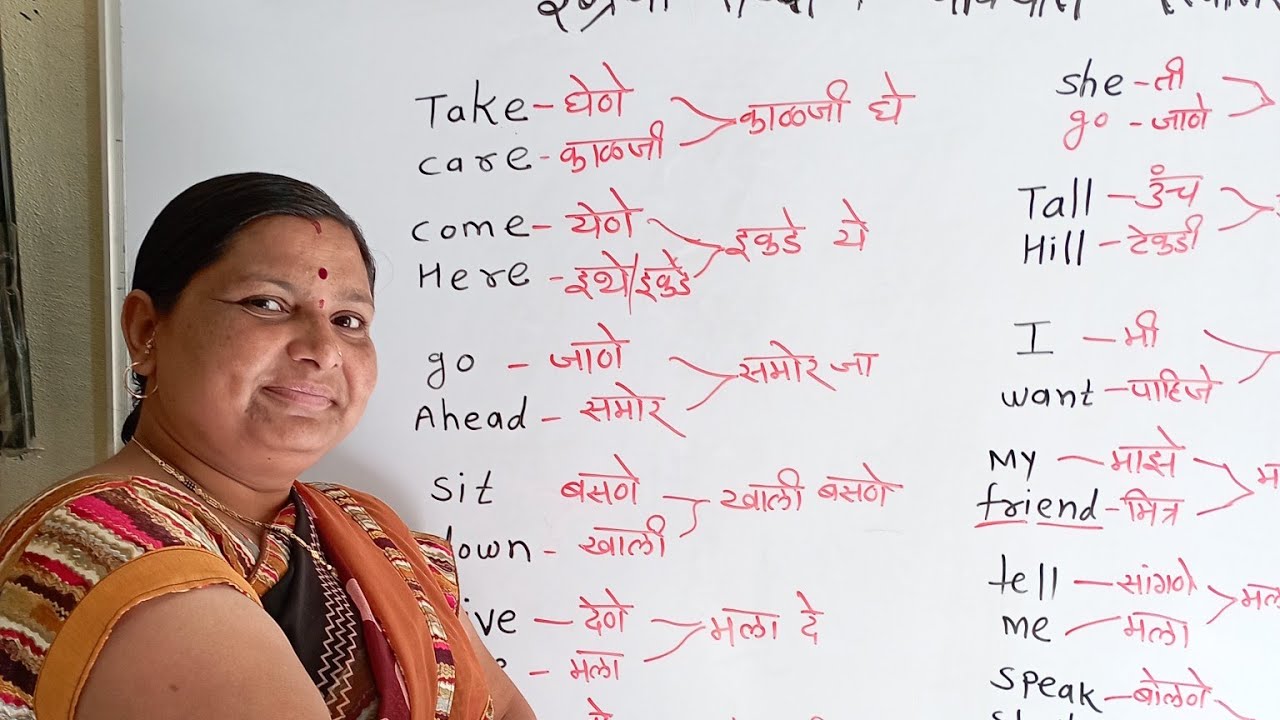 Take - घेणे
care - काळजी
काळजी घे
come - येणे
Here - इथे/इकडे
इकडे ये
go - जाणे
Ahead - समोर
समोर जा
sit बसणे
down - खाली
खाली बसणे
देणे
- मला
मला दे
she - ती
go - जाणे
Tall - उंच
Hill - टेकडी
I - मी
want - पाहिजे
My - माझे
friend - मित्र
tell - सांगणे
me - मला
speak - बोलणे